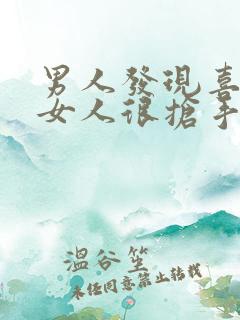 男人發現喜
女人很搶手
溫谷笙
未经同意禁止转载